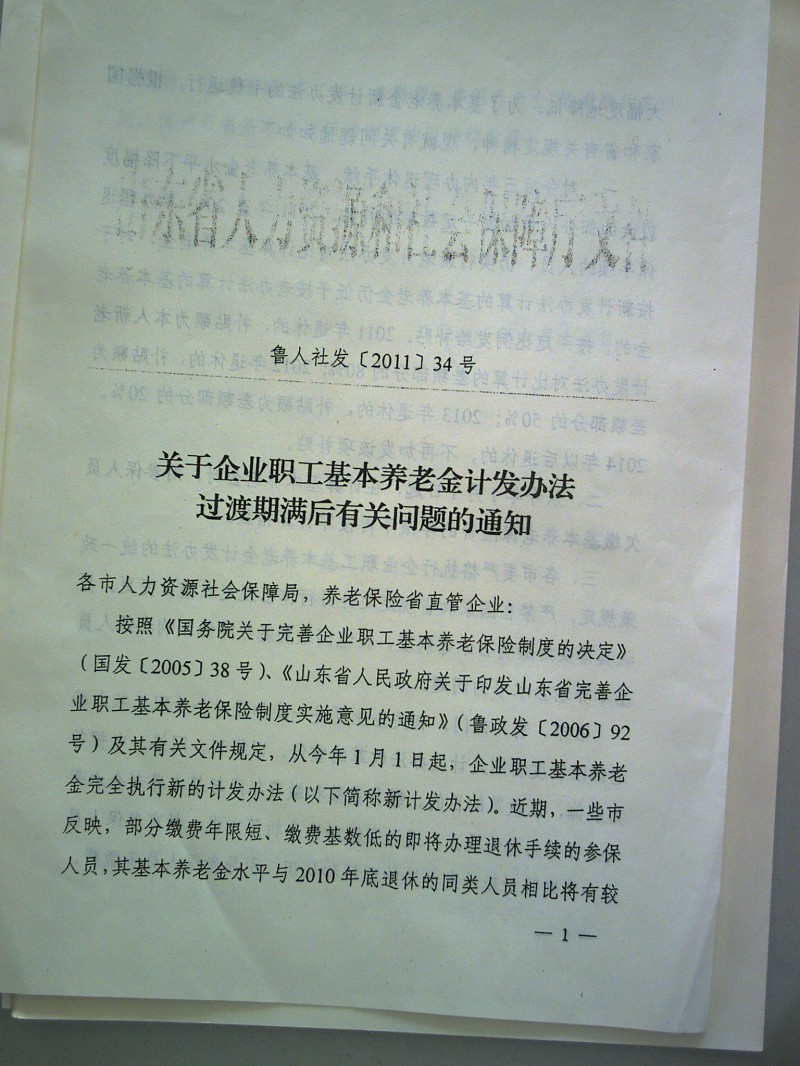 山东省人力资源和社会保障厅文件
鲁人社发〔2011〕34号
关于企业职工基本养老金计发办法
过渡期满后有关问题的通知
各市人力资源社会保障局，养老保险省直管企业：
按照《国务院关于完善企业职工基本养老保险制度的决定》
（国发〔2005〕38号）、《山东省人民政府关于印发山东省完善企
业职工基本养老保险制度实施意见的通知》（鲁政发〔2006〕92
号）及其有关文件规定，从今年1月1日起，企业职工基本养老
金完全执行新的计发办法（以下简称新计发办法）。近期，一些市
反映，部分缴费年限短、缴费基数低的即将办理退休手续的参保
人员，其基本养老金水平与2010年底退休的同类人员相比将有较
— 1 —